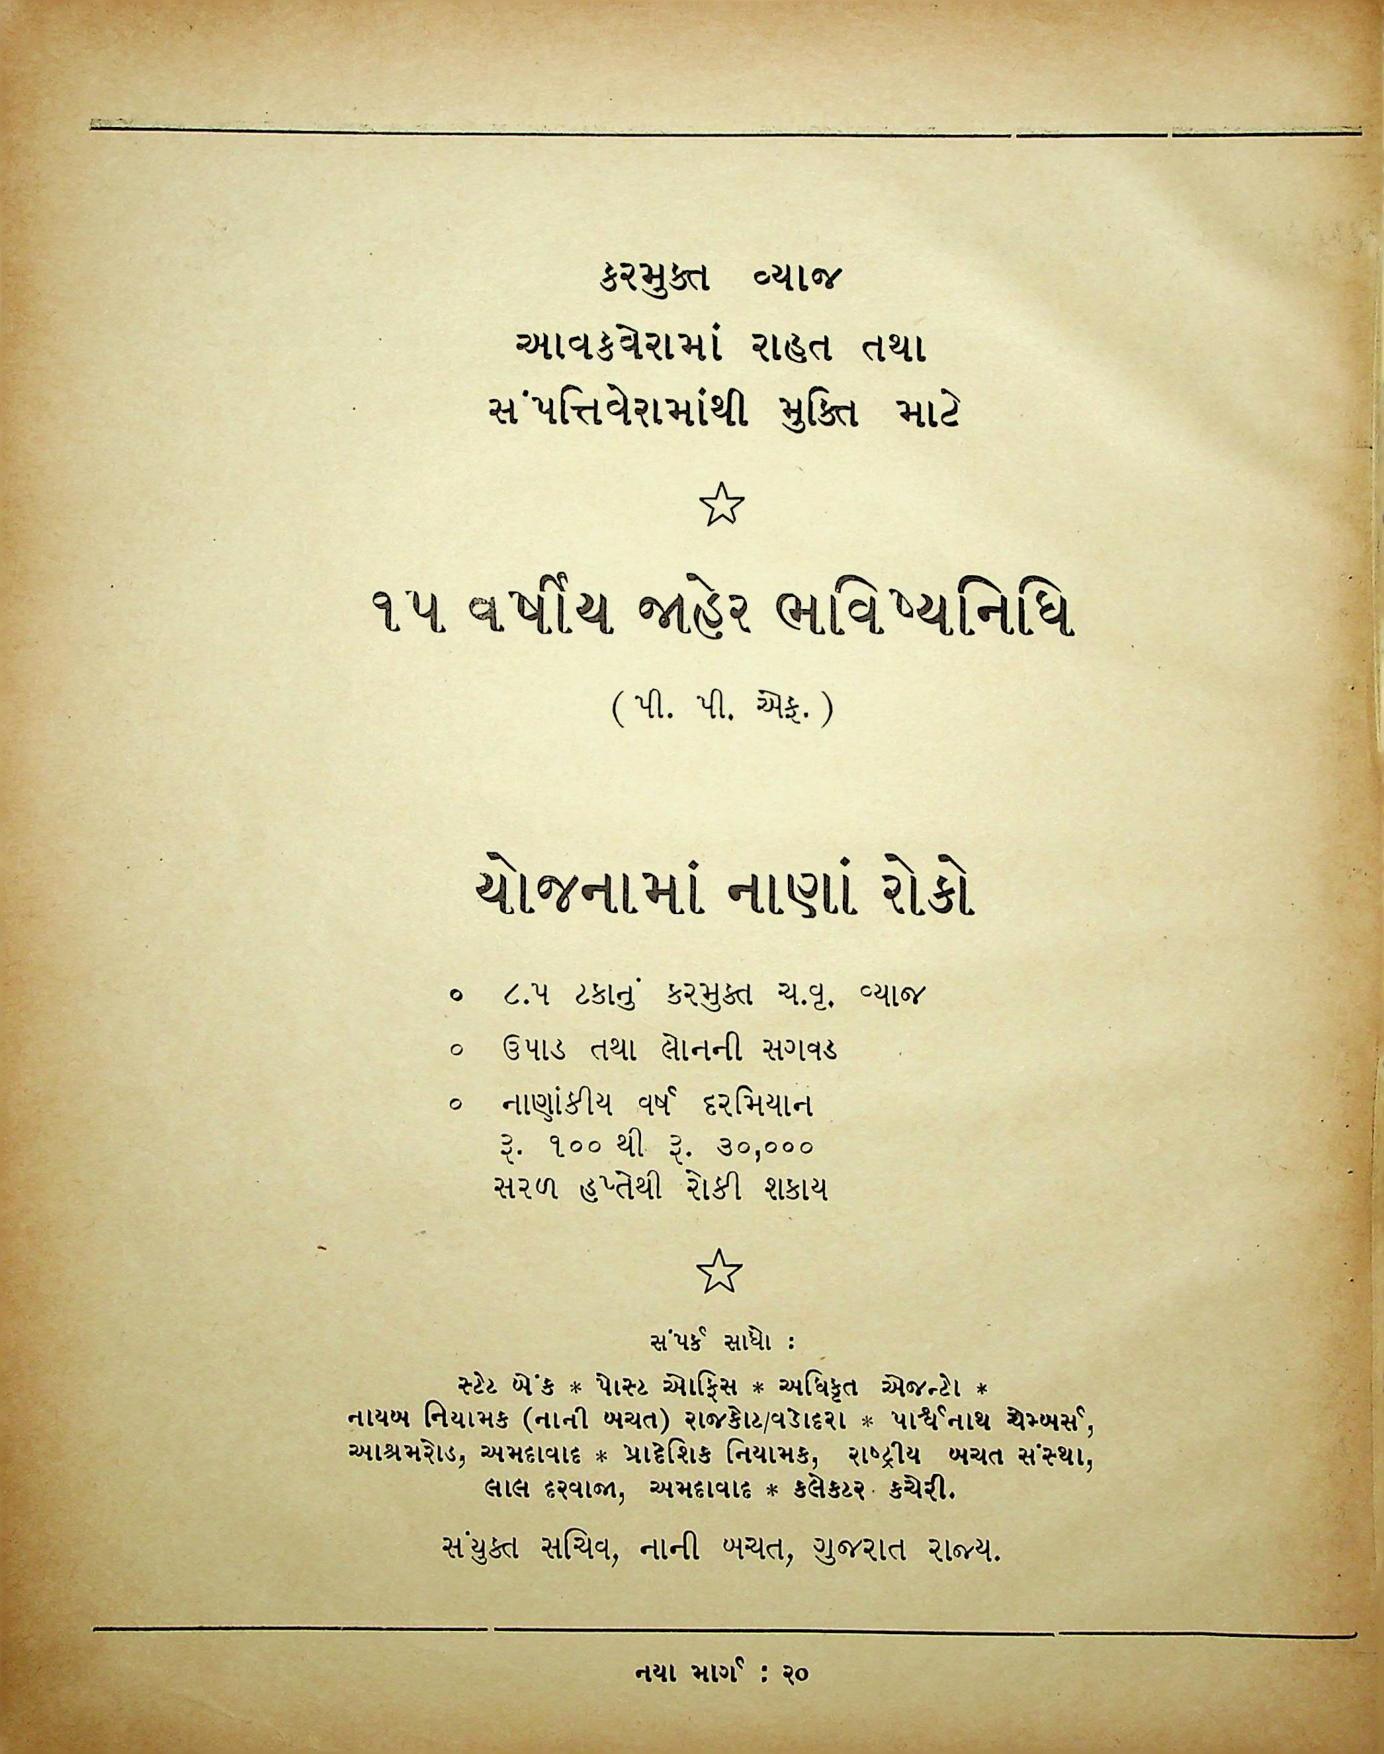 કરમુક્ત વ્યાજ
આવકવેરામાં રાહત તથા
સંપત્તિવેરામાંથી મુક્તિ માટે
૧૫ વર્ષીય જાહેર ભવિષ્યનિધિ
( પી. પી. એફ. )
યોજનામાં નાણાં રોકો
૦ ૮.૫ ટકાનું કરમુક્ત ચ.વૃ. વ્યાજ
૦ ઉપાડ તથા લોનની સગવડ
૦ નાણાંકીય વર્ષ દરમિયાન
રૂ. ૧૦૦ થી રૂ. ૩૦,૦૦૦
સરળ હપ્તેથી રોકી શકાય
સંપર્ક સાધો :
સ્ટેટ બેંક * પોસ્ટ ઓફિસ * અધિકૃત એજન્ટો *
નાયબ નિયામક (નાની બચત) રાજકોટ/વડોદરા * પાર્શ્વનાથ ચેમ્બર્સ,
આશ્રમરોડ, અમદાવાદ * પ્રાદેશિક નિયામક, રાષ્ટ્રીય બચત સંસ્થા,
લાલ દરવાજા, અમદાવાદ * કલેક્ટર કચેરી.
સંયુક્ત સચિવ, નાની બચત, ગુજરાત રાજ્ય.
નયા માર્ગ : ૨૦